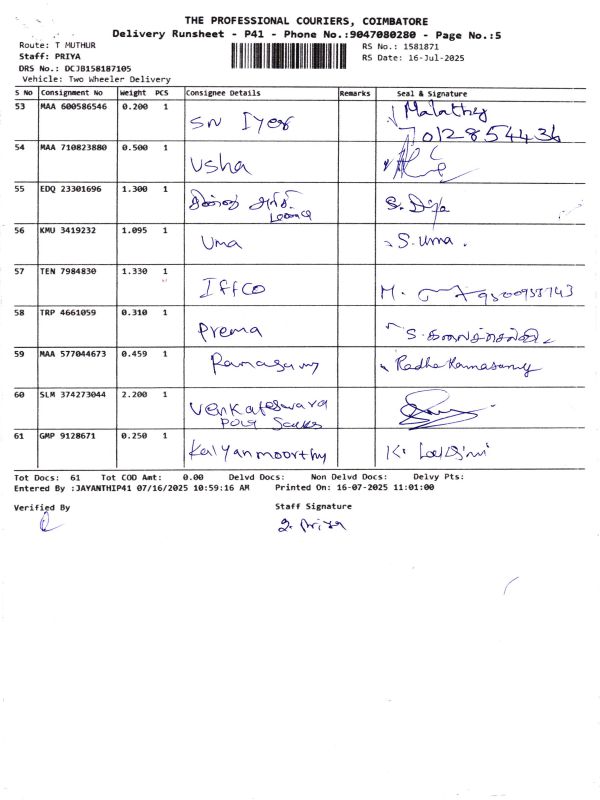 THE PROFESSIONAL COURIERS, COIMBATORE
Delivery Runsheet - P41 - Phone No.:9047080280 - Page No.:5
Route: T MUTHUR RS No.: 1581871
Staff: PRIYA RS Date: 16-Jul-2025
DRS No.: DCJB158187105
Vehicle: Two Wheeler Delivery
S No Consignment No Weight PCS Consignee Details Remarks Seal & Signature
53 MAA 600586546 0.200 1 SN Iyer Malathy
7012854436
54 MAA 710823880 0.500 1 Usha
55 EDQ 23301696 1.300 1 S. Divya
56 KMU 3419232 1.095 1 Uma S. Uma.
57 TEN 7984830 1.330 1 IFFCO M.
58 TRP 4661059 0.310 1 Prema S. கலைச்செல்வி
59 MAA 577044673 0.459 1 Ramasamy Radha Ramasamy
60 SLM 374273044 2.200 1 Venkateswara
Poly Sacks
61 GMP 9128671 0.250 1 Kalyanmoorthy K.
Tot Docs: 61 Tot COD Amt: 0.00 Delvd Docs: Non Delvd Docs: Delvy Pts:
Entered By :JAYANTHIP41 07/16/2025 10:59:16 AM Printed On: 16-07-2025 11:01:00
Verified By Staff Signature
Priya